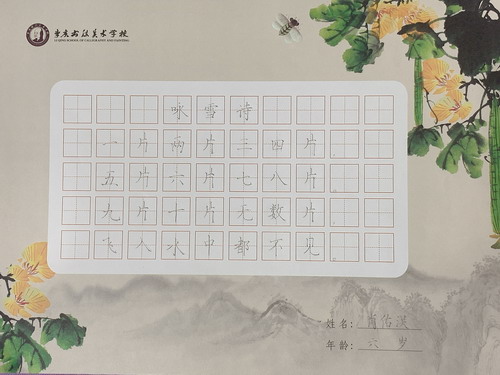 书法美术学校
咏雪诗
一片两片三四片
五片六片七八片
九片十片无数片
飞入水中都不见
姓名：肖佑
年龄：六岁